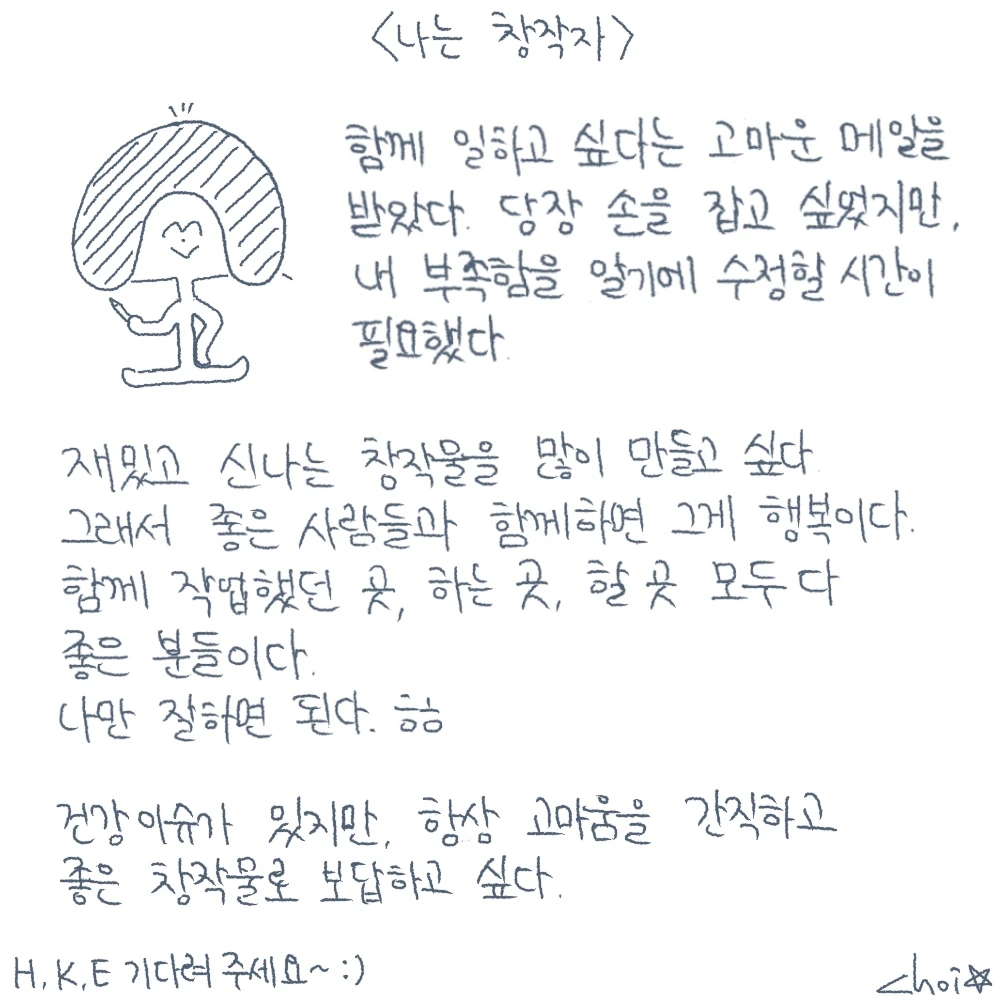 <나는 창작자>
함께 일하고 싶다는 고마운 메일을
받았다. 당장 손을 잡고 싶었지만,
내 부족함을 알기에 수정할 시간이
필요했다.
재밌고 신나는 창작물을 많이 만들고 싶다
그래서 좋은 사람들과 함께하면 그게 행복이다.
함께 작업했던 곳, 하는 곳, 할 곳 모두 다
좋은 분들이다.
나만 잘하면 된다. ㅎㅎ
건강이슈가 있지만, 항상 고마움을 간직하고
좋은 창작물로 보답하고 싶다.
H, K, E 기다려 주세요~ :)
choi☆